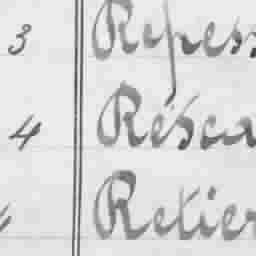 3 Repess
4 Résca
Retier